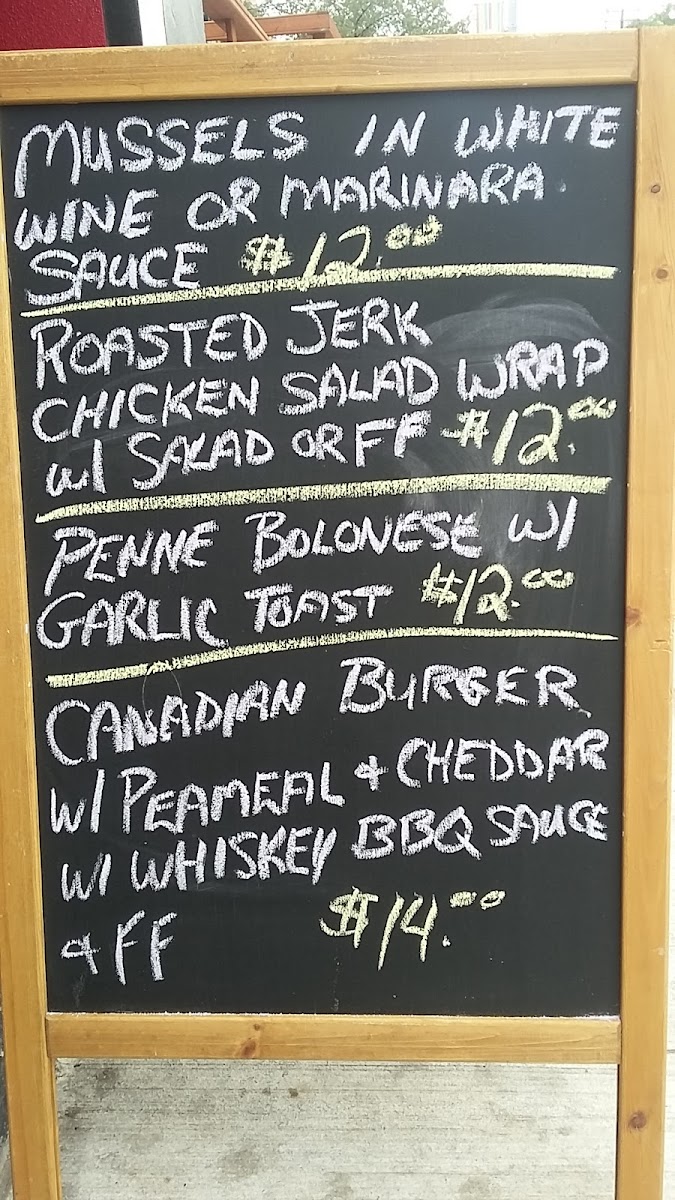 MUSSELS IN WHITE
WINE OR MARINARA
SAUCE $12.00
ROASTED JERK
CHICKEN SALAD WRAP
W/ SALAD OR FF $12.00
PENNE BOLONESE W/
GARLIC TOAST $12.00
CANADIAN BURGER
W/ PEAMEAL & CHEDDAR
W/ WHISKEY BBQ SAUCE
& FF $14.00